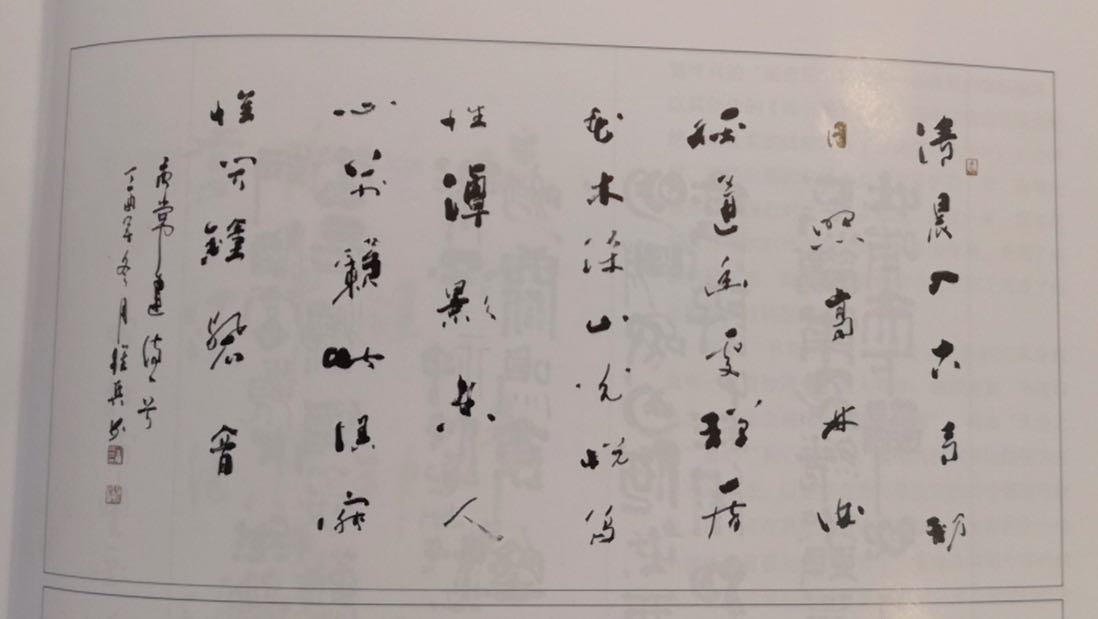 清晨入古寺初
日照高林曲
徑通幽處禪房
花木深山光悅鳥
性潭影空人
心萬籟此俱寂
惟聞鐘磬音
常建詩一首
丁酉年冬月